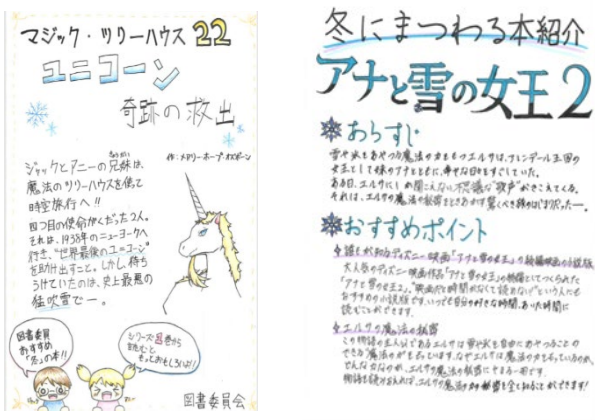 マジック・ツリーハウス 22
ユニコーン
奇跡の救出
作：メアリー・ポープ・オズボーン
ジャックとアニーの兄妹は、
きょうだい
魔法のツリーハウスを使って
時空旅行へ!!
四つ目の使命がくだった2人。
それは、1938年のニューヨークへ
行き、"世界最後のユニコーン"
を助け出すこと。しかし、待ち
うけていたのは、史上最悪の
猛吹雪で―。
図書委員
おすすめ
"冬"の本!!
シリーズ
読むと
もっとおもしろいよ!!
図書委員会
冬にまつわる本紹介
アナと雪の女王2
あらすじ
雪や氷をあやつる魔法の力をもつエルサは、アレンデール王国の
女王として妹のアナとともに、幸せな日々をすごしていた。
ある日、エルサにしか聞こえない不思議な"歌声"がきこえてくる。
それは、エルサの魔法の秘密をときあかす驚くべき旅のはじまりだった―。
おすすめポイント
誰もが知るディズニー映画"アナと雪の女王"の続編映画の小説版
大人気のディズニー映画作品「アナと雪の女王」の続編としてつくられた
「アナと雪の女王2」。"映画だと時間がなくて読めない"という人にも
おすすめの小説版です。いつでも自分の好きな時間、あいた時間に
読むことができます。
エルサの魔法の秘密
この物語の主人公であるエルサは雪や氷を自由にあやつることの
できる"魔法の力"をもっています。なぜエルサは魔法の力をもっているのか、
どんな力なのか、エルサの魔法の秘密にせまる一冊です。
物語を読みおえれば、エルサの魔法の力の秘密を全て知ることができます!